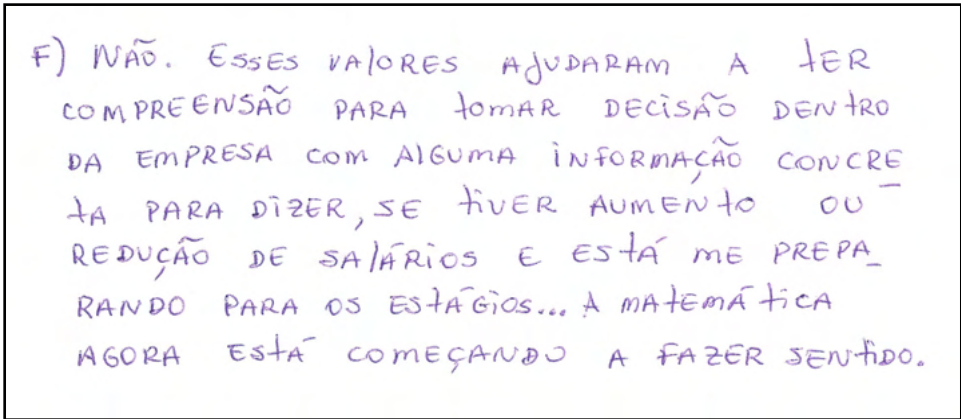 F) NÃO. ESSES VALORES AJUDARAM A TER
COMPREENSÃO PARA TOMAR DECISÃO DENTRO
DA EMPRESA COM ALGUMA INFORMAÇÃO CONCRE_
TA PARA DIZER, SE TIVER AUMENTO OU
REDUÇÃO DE SALÁRIOS E ESTÁ ME PREPA_
RANDO PARA OS ESTÁGIOS... A MATEMÁTICA
AGORA ESTÁ COMEÇANDO A FAZER SENTIDO.